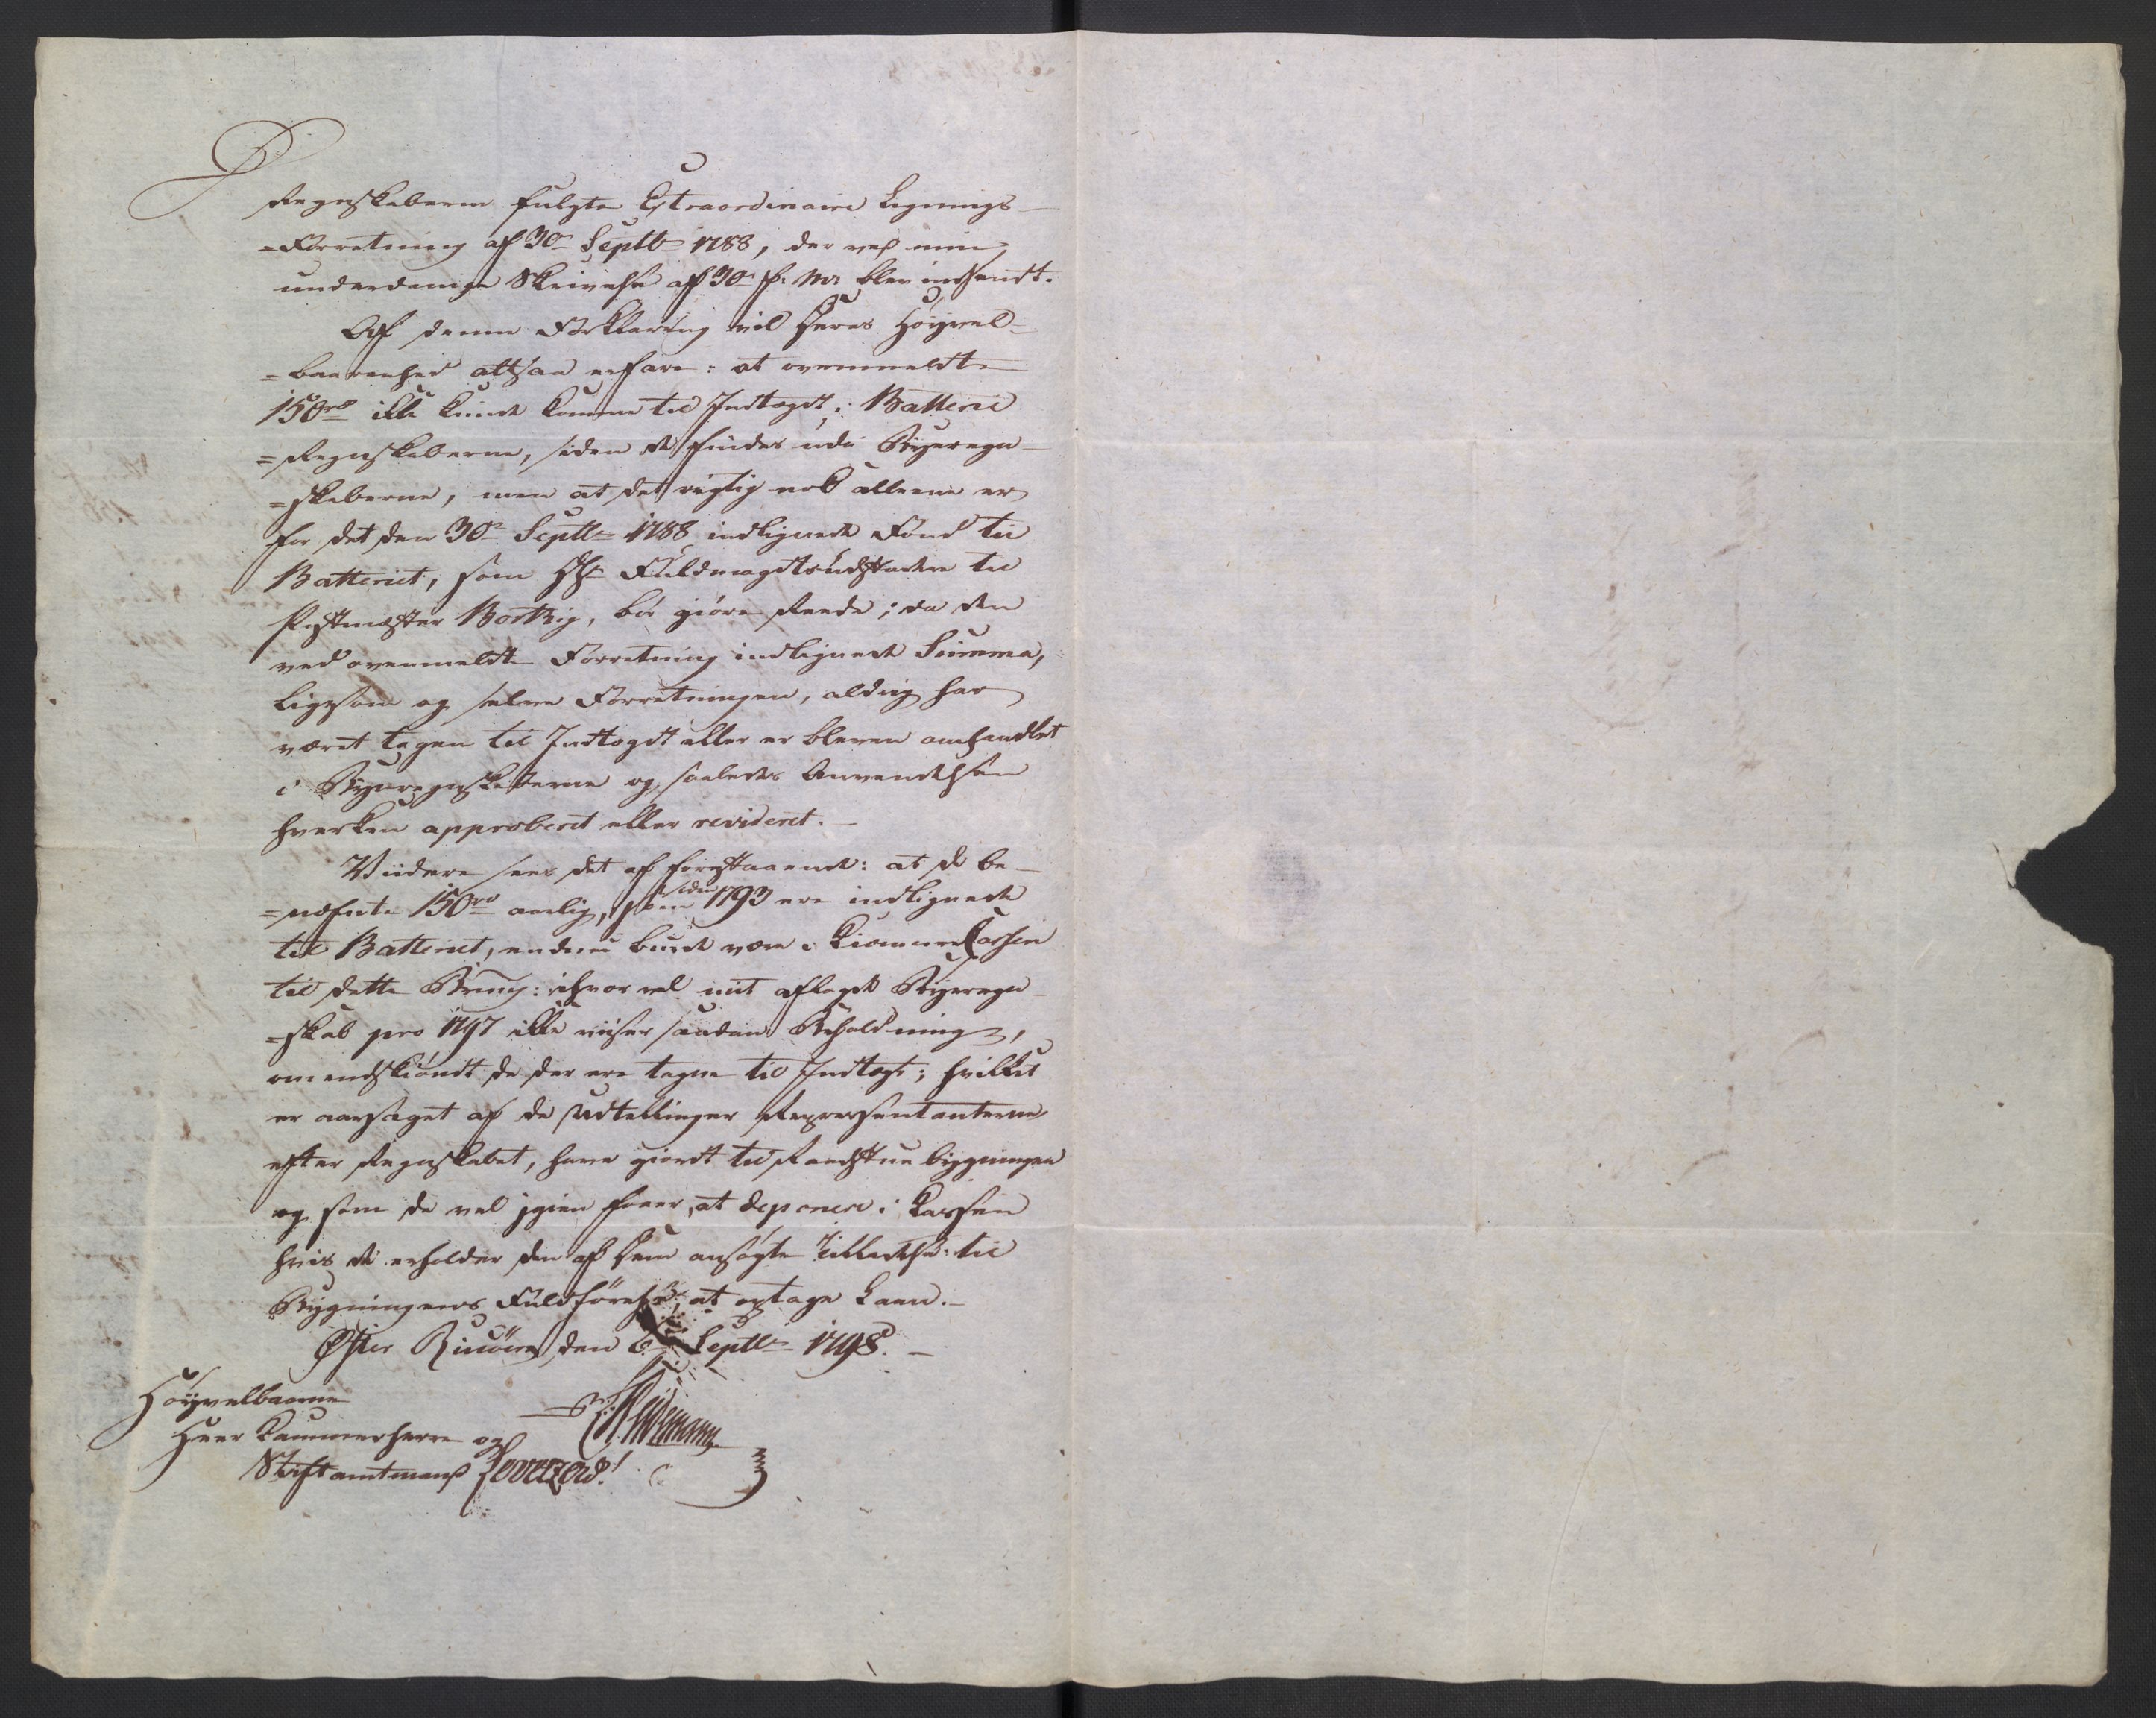 Regnskaberne fulgte Extraordinaire Lignings-
=Forretning af 30te Septbr 1788, der ved min
underdanige Skrivelse af 30te f. M. blev indsendt.
Af denne Forklaring vil Deres Høyvel-
=baarenhed altsaa erfare: at ovenmeldte
150rd ikke kunde komme til Indtægt i Batterie
=Regnskaberne, siden de findes udi Byeregn-
=skaberne, men at det rigtig nok alleene er
for det den 30te Septbr 1788 indlignede Fond til
Batteriet, som Hr Fuldmagtsudstædere til
Postmester Bothzig, bør giøre Reede; da den
ved ovenmeldte Forretning indlignede Summa,
ligesom og selve Forretningen, aldrig har
været tagen til Indtægt eller er bleven omhandlet
i Byeregnskaberne og saaledes Anvendelsen
hverken approberet eller revideret.-
Viidere sees det af forestaaende: at de be-
=nefnte 150rd aarlig, som siden 1793 ere indlignede
til Batteriet, endnu burde være i Kiæmner Cassen
til dette Brug: ihvorvel mit aflagde Byeregn-
=skab pro 1797 ikke viiser saadan Beholdning,
omendskiøndt de der ere tagne til Indtægt; hvilket
er aarsaget af de Udtellinger Representanterne
efter Regnskabet, have giordt til Raadstue bygningen
og som de vel igien faaer at deponere i Cassen
hvis de erholder den af dem ansøgte Tilladelse til
Bygningens Fuldførelse, at optage Laan.-
Øster Riisöer den 6te Septbr 1798.-
Høyvelbaarne
Herr Kammerherre og
Heidemann
Stiftamtmand